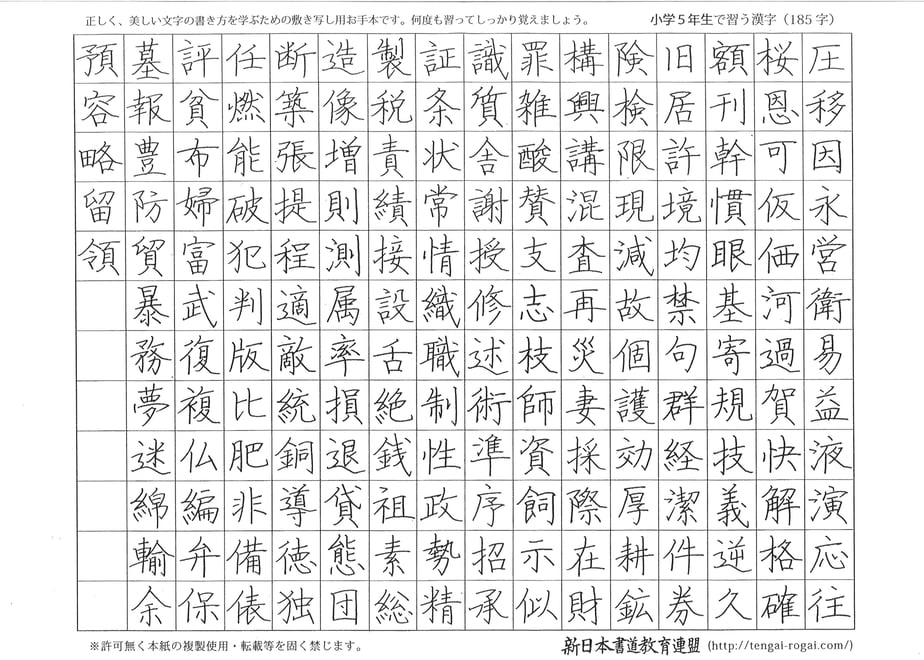 正しく、美しい文字の書き方を学ぶための敷き写し用お手本です。何度も習ってしっかり覚えましょう。
小学5年生で習う漢字（185字）
圧移因永営衛易益液演応往
桜恩可仮価河過賀快解格確
額刊幹慣眼基寄規技義逆久
旧居許境均禁句群経潔件券
険検限現減故個護効厚耕鉱
構興講混査再災妻採際在財
罪雑酸賛支志枝師資飼示似
識質舎謝授修述術準序招承
証条状常情織職制性政勢精
製税責績接設舌絶銭祖素総
造像増則測属率損退貸態団
断築張提程適敵統銅導徳独
任燃能破犯判版比肥非備俵
評貧布婦富武復複仏編弁保
墓報豊防貿暴務夢迷綿輸余
預容略留領
※許可無く本紙の複製使用・転載等を固く禁じます。
新日本書道教育連盟 (http://tengai-rogai.com/)